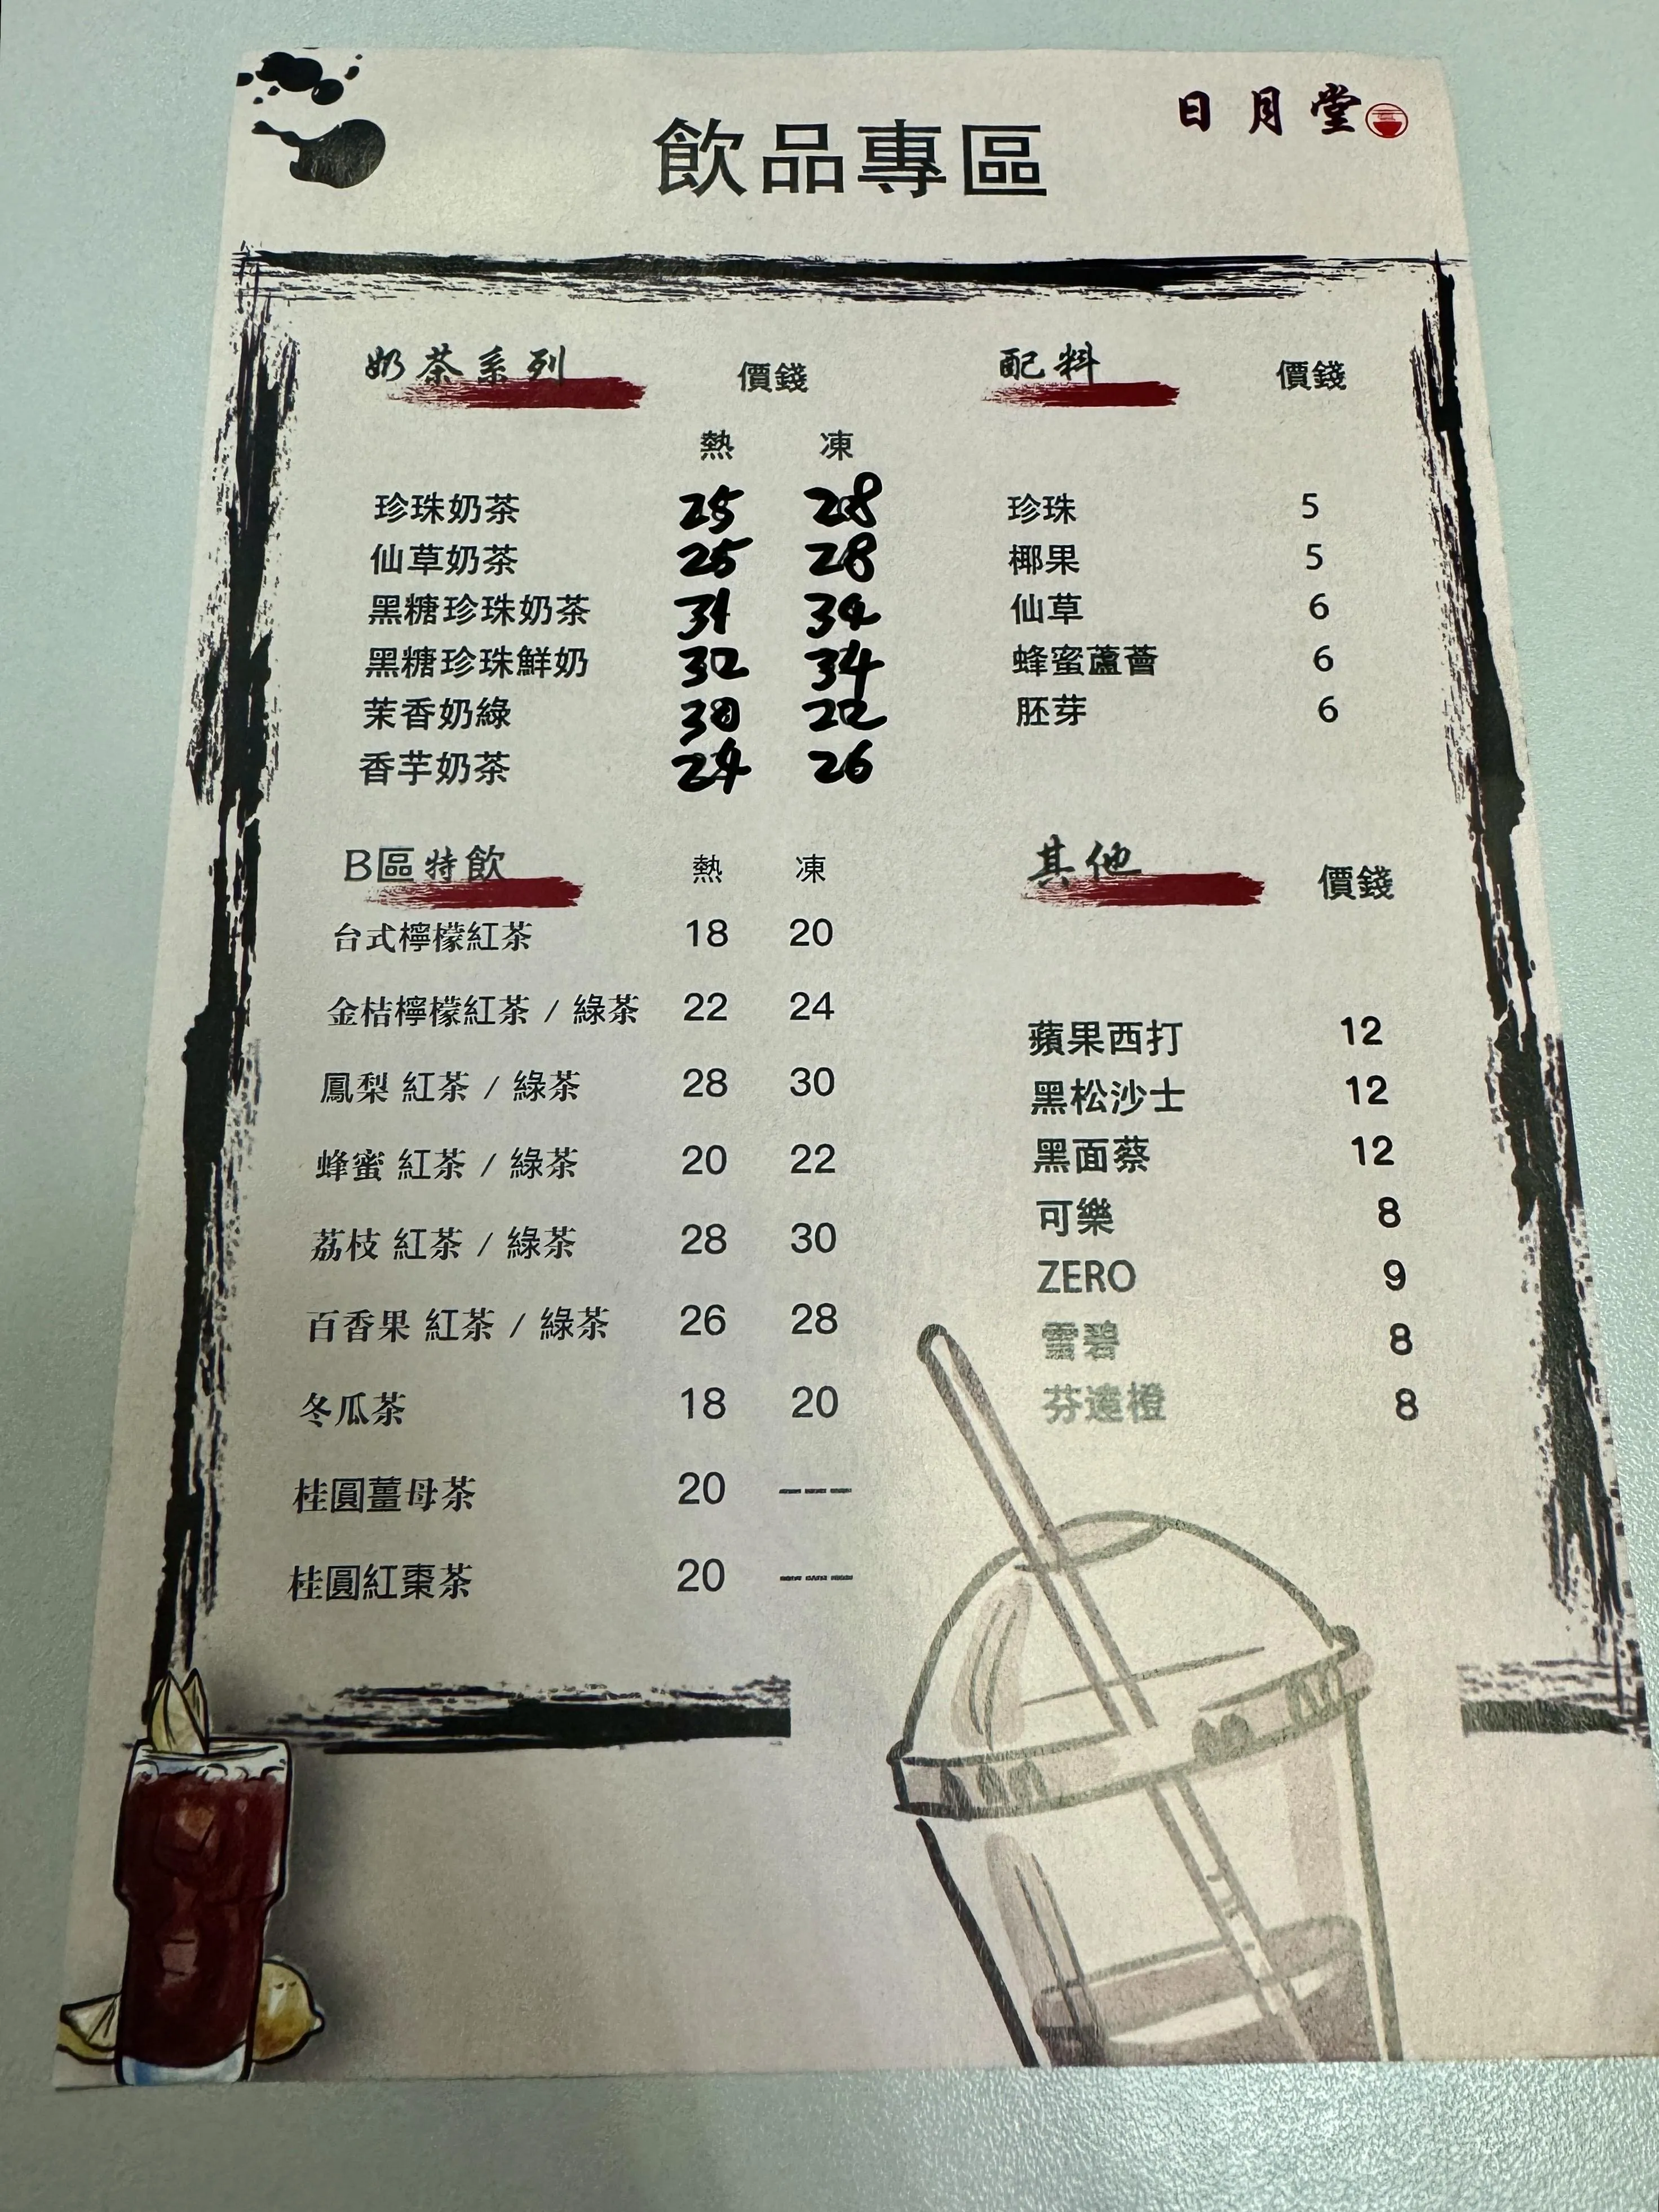 日月堂
飲品專區
奶茶系列 價錢
熱 凍
珍珠奶茶 25 28
仙草奶茶 25 28
黑糖珍珠奶茶 31 34
黑糖珍珠鮮奶 32 34
茉香奶綠 30 22
香芋奶茶 24 26
配料 價錢
珍珠 5
椰果 5
仙草 6
蜂蜜蘆薈 6
胚芽 6
B區特飲 熱 凍
台式檸檬紅茶 18 20
金桔檸檬紅茶 / 綠茶 22 24
鳳梨 紅茶 / 綠茶 28 30
蜂蜜 紅茶 / 綠茶 20 22
荔枝 紅茶 / 綠茶 28 30
百香果 紅茶 / 綠茶 26 28
冬瓜茶 18 20
桂圓薑母茶 20 ---
桂圓紅棗茶 20 ---
其他 價錢
蘋果西打 12
黑松沙士 12
黑面蔡 12
可樂 8
ZERO 9
雪碧 8
芬達橙 8